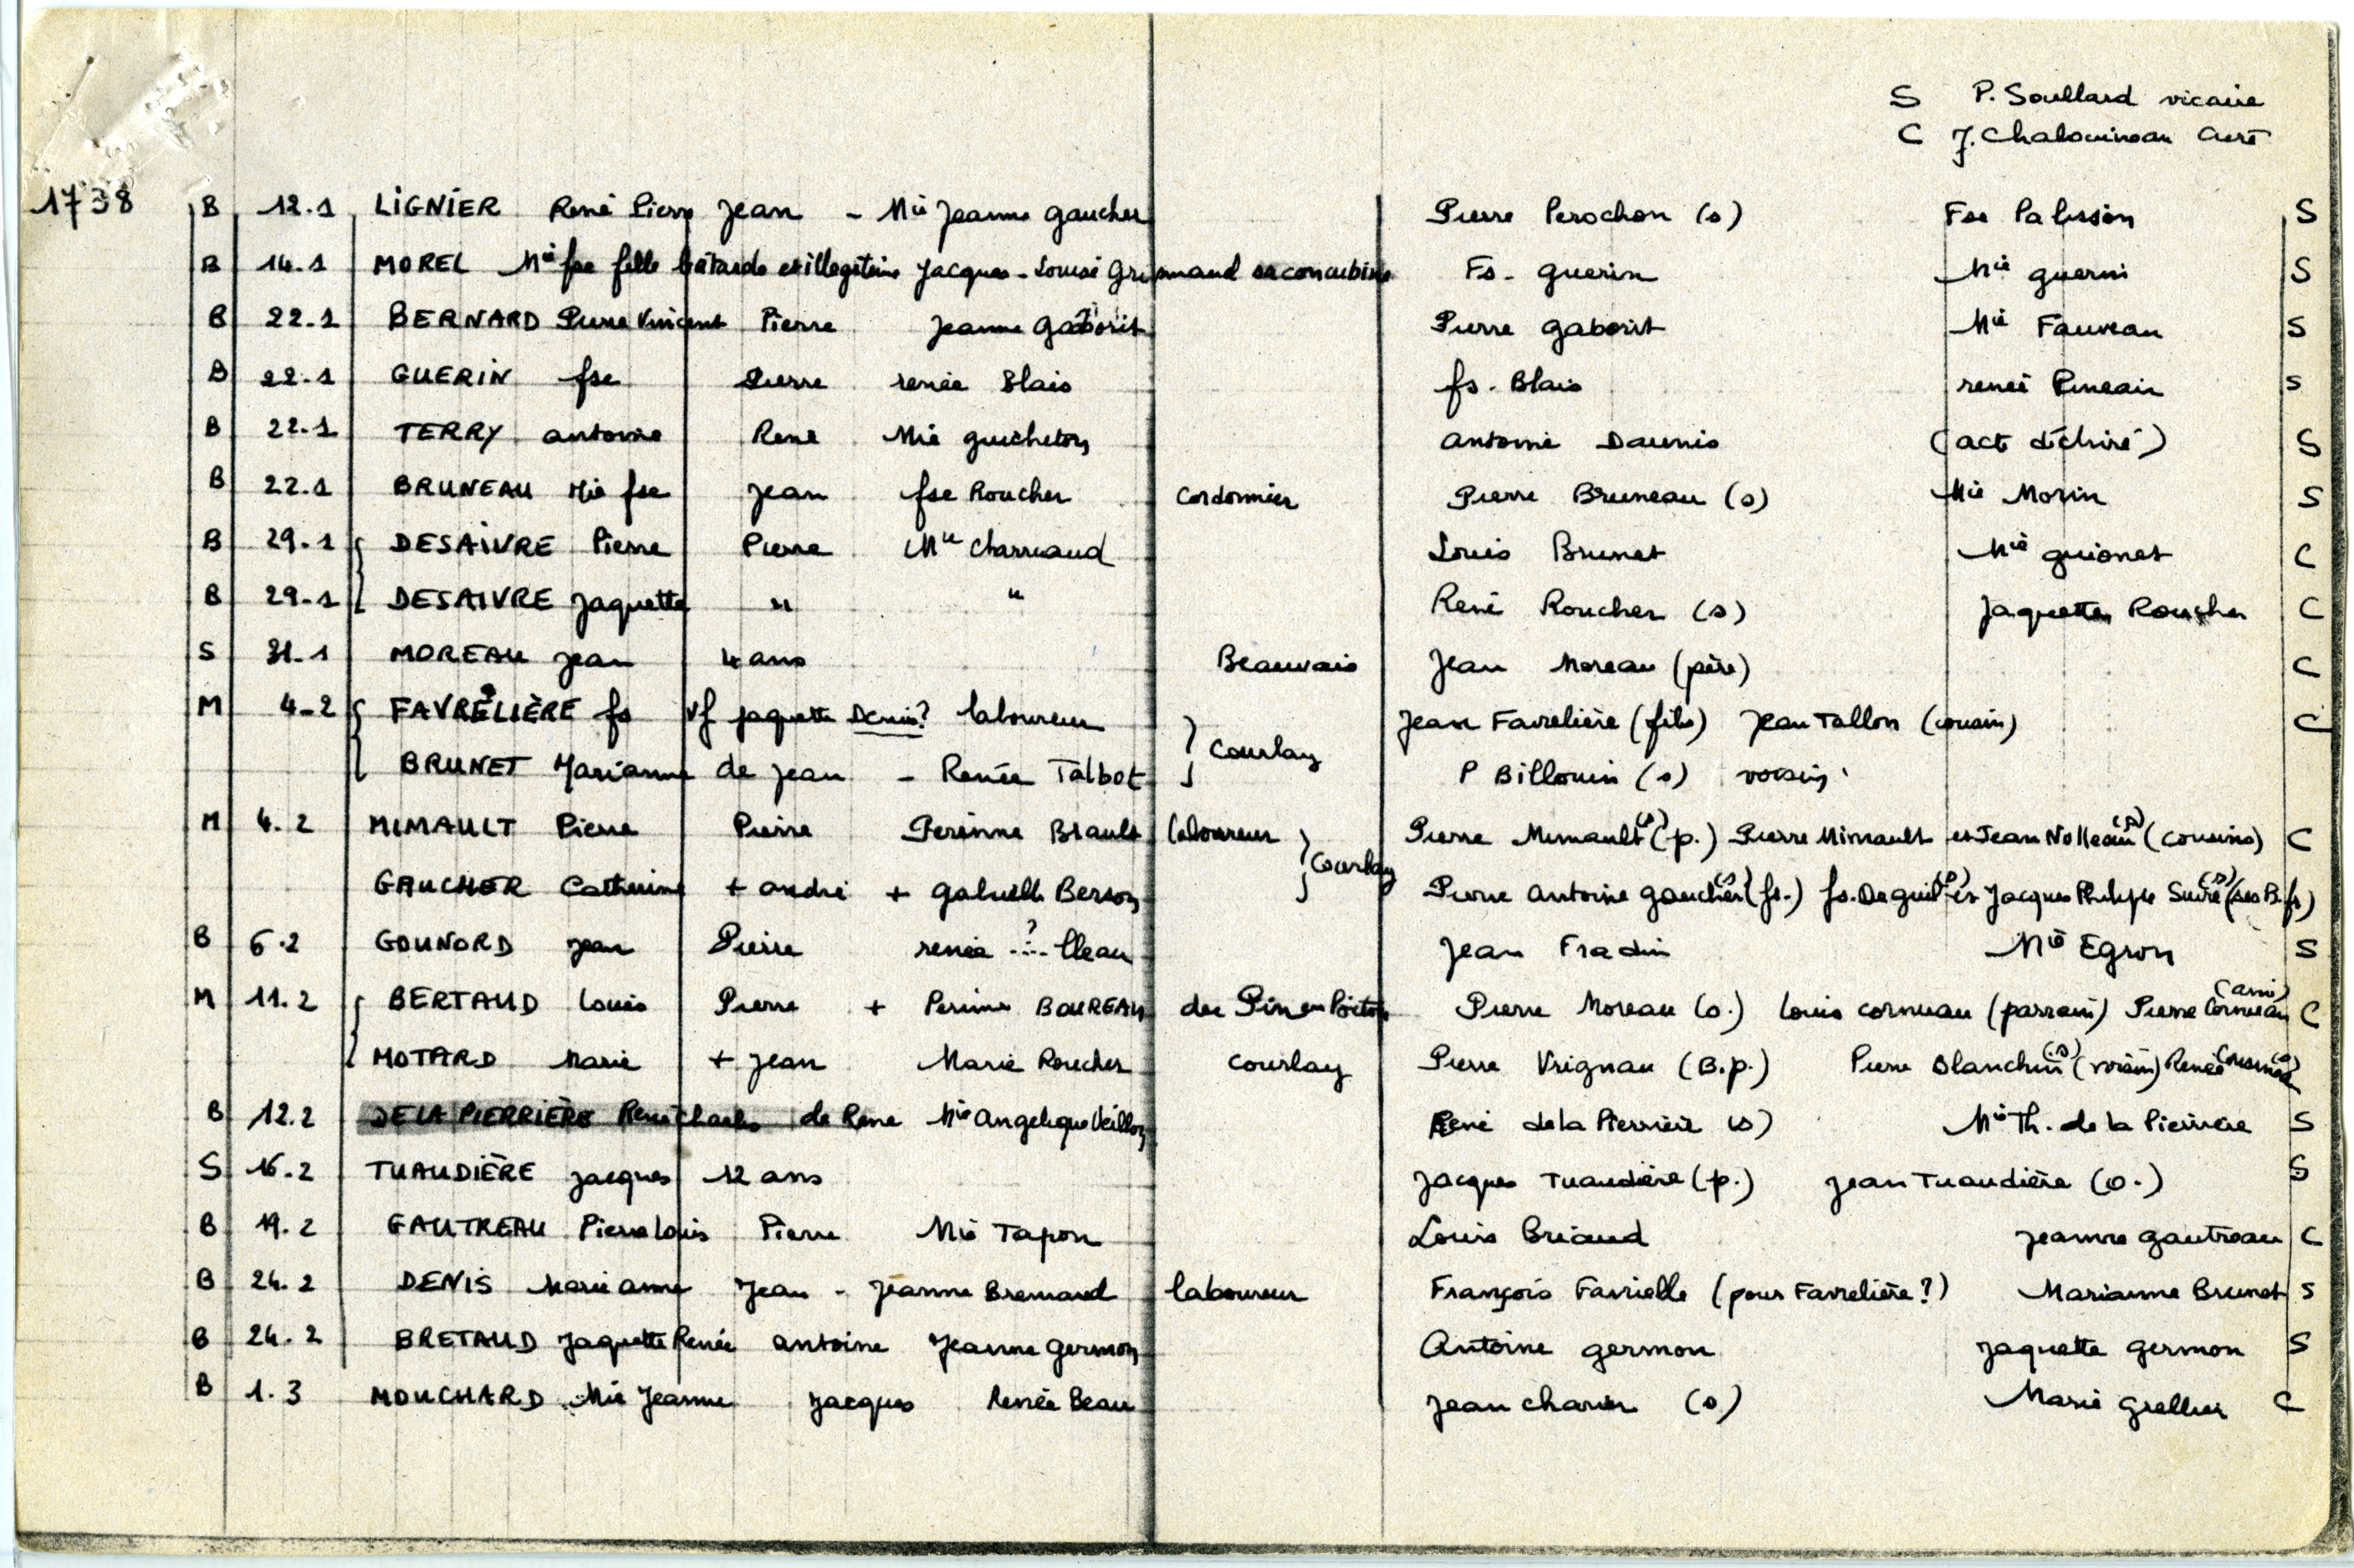 S P. Soullard vicaire
C J. Chalouineau curé
1738 B 12.1 LIGNIER René Pierre Jean - Mie Jeanne Gaucher Pierre Perochon (s) Fse Palisson S
B 14.1 MOREL Mie fse fille batarde et illegitime Jacques - Louise Grimmaud sa concubine Fs. Guerin Mie Guerin S
B 22.1 BERNARD Pierre Vincent Pierre Jeanne Gaborit Pierre Gaborit Mie Fauveau S
B 22.1 GUERIN fse Pierre renée Blais fs. Blais renée Pineau S
B 22.1 TERRY antoine René Mie Guicheton antoine Daunis (acte déchiré) S
B 22.1 BRUNEAU Mie fse Jean fse Roucher Cordonnier Pierre Bruneau (s) Mie Morin S
B 29.1 DESAIVRE Pierre Pierre Mie Charruaud Louis Brunet Mie Guionet C
B 29.1 DESAIVRE Jaquette " " René Roucher (s) Jaquette Roucher C
S 31.1 MOREAU Jean 4 ans Beauvais Jean Moreau (père) C
M 4.2 FAVRELIÈRE fs Vf Jaquette Denis? laboureur Jean Favrelière (fils) Jean Tallon (cousin) C
BRUNET Marianne de Jean - Renée Talbot Courlay P Billouin (s) voisin
M 4.2 MIMAULT Pierre Pierre Perinne Brault laboureur Pierre Mimault (s) (p.) Pierre Mimault et Jean Nolleau (s) (cousins) C
GAUCHER Catherine + andré + Gabrielle Berson Courlay Pierre Antoine Gaucher (s) (fs.) fs. Jacques Philippe (s) (ses B.fs)
B 6.2 GOUNORD Jean Pierre renée ...?lleau Jean Fradin Mie Egron S
M 11.2 BERTAUD Louis Pierre + Perinne BOUREAU du Pin en Poitou Pierre Moreau (s.) Louis Cornuau (parrain) Pierre Cornuau (ami) C
MOTARD Marie + Jean Marie Roucher Courlay Pierre Vrignau (B.p.) Pierre Blanchin (s) (voisin) René (s)
B 12.2 DE LA PIERRIÈRE René Charles de René Mie Angelique Veillon René de la Pierrière (s) Mie Th. de la Pierrière S
S 16.2 TUAUDIÈRE Jacques 12 ans Jacques Tuaudière (p.) Jean Tuaudière (s.) S
B 19.2 GAUTREAU Pierre Louis Pierre Mie Tapon Louis Briaud Jeanne Gautreau C
B 24.2 DENIS Marie anne Jean - Jeanne Bremaud laboureur François Favrielle (pour Favrelière?) Marianne Brunet S
B 24.2 BRETAUD Jaquette Renée antoine Jeanne Germon Antoine Germon Jaquette Germon S
B 1.3 MOUCHARD Mie Jeanne Jacques Renée Beau Jean Charier (s) Marie Grellier C